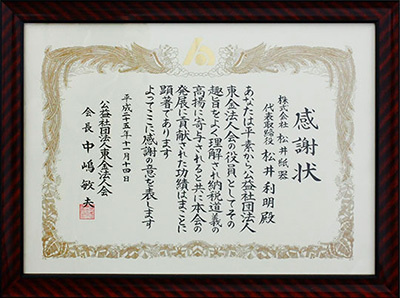 感謝状
株式会社 松井紙器
代表取締役 松井利明殿
あなたは平素から公益社団法人
東金法人会の役員としてその
趣旨をよく理解され納税道義の
高揚に寄与されると共に本会の
発展に貢献された功績はまことに
顕著であります
よってここに感謝の意を表します
平成二十五年十一月十四日
公益社団法人東金法人会
会長 中嶋敏夫